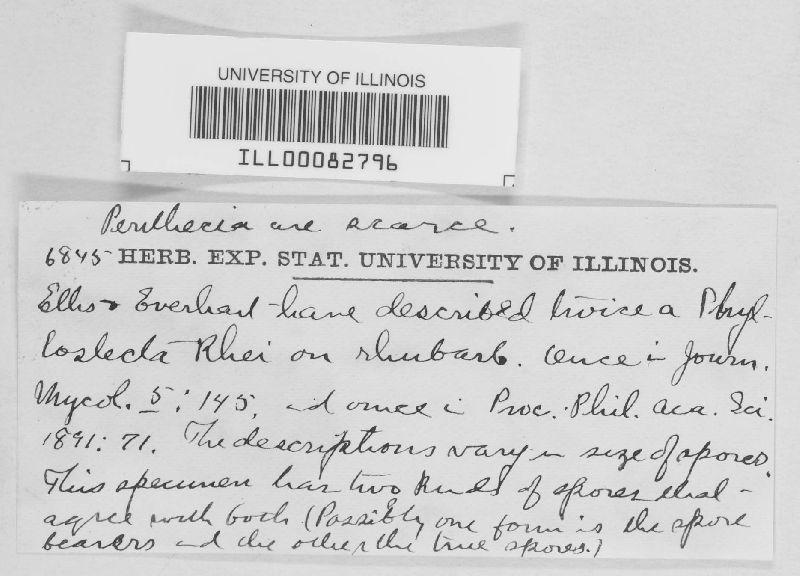 UNIVERSITY OF ILLINOIS
ILL00082796
Perithecia are scarce.
6845 HERB. EXP. STAT. UNIVERSITY OF ILLINOIS.
Ellis & Everhart have described twice a Phyl-
losticta Rhei on rhubarb. Once in Journ.
Mycol. 5: 145, and once in Proc. Phil. Aca. Sci.
1891: 71. The descriptions vary in size of spores.
This specimen has two kinds of spores that
agree with both (Possibly one form is the spore
bearers and the other the true spores.)